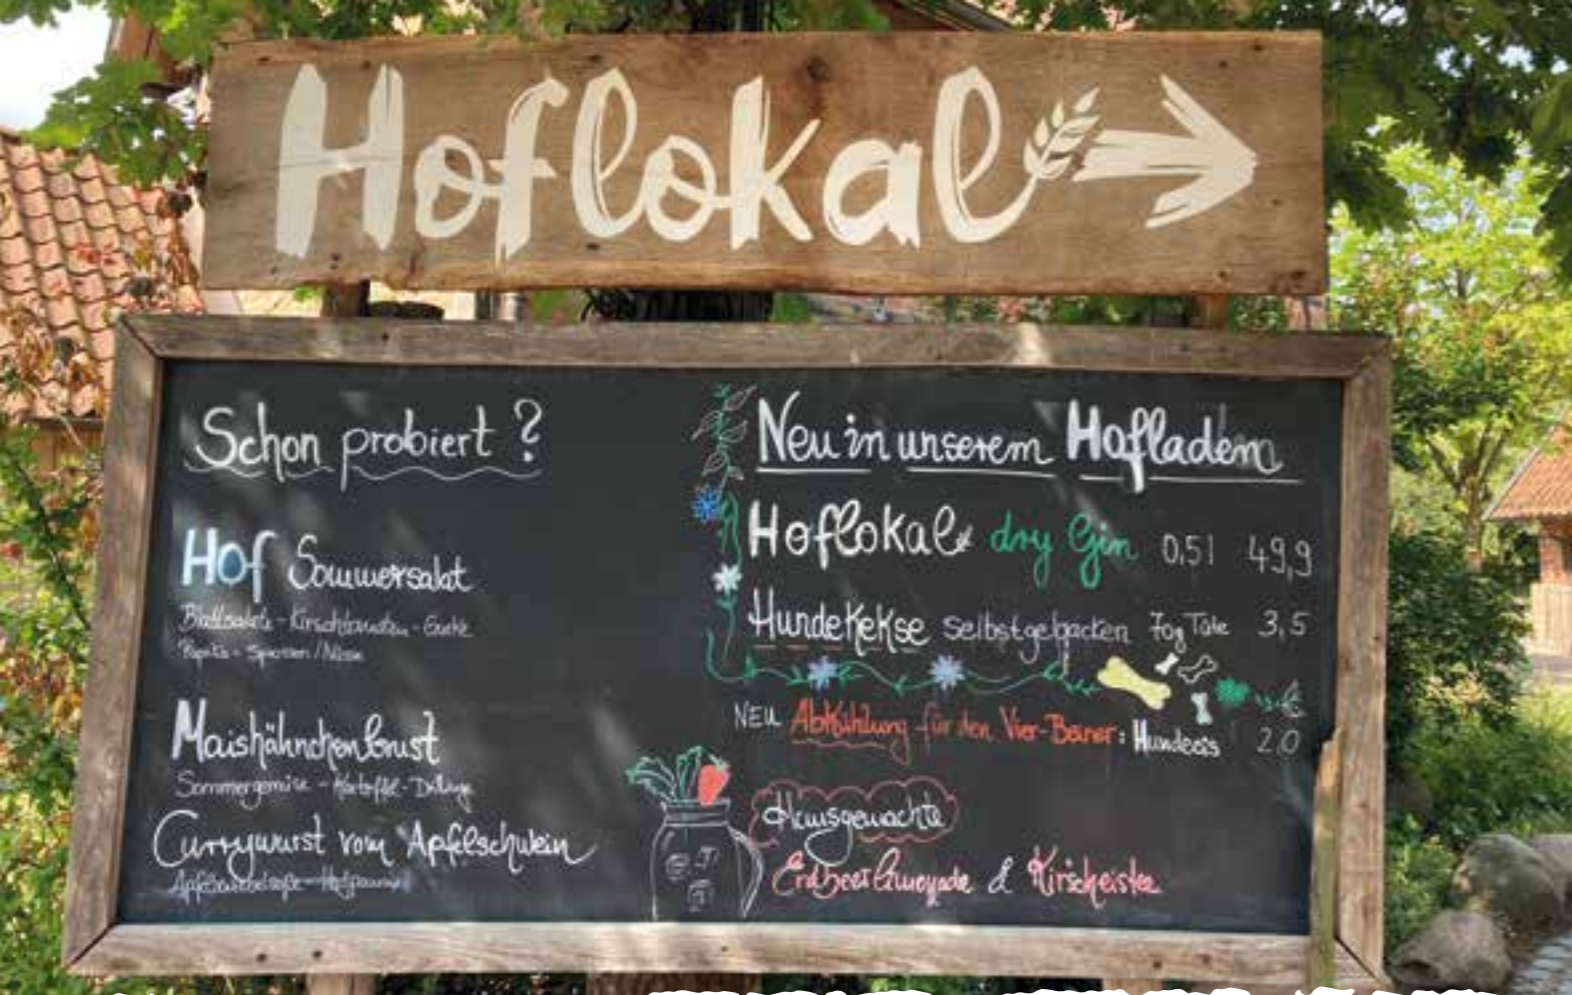 Hoflokal
Schon probiert?
Hof Sommersalat
Blattsalate - Kirschtomaten - Gurke
Paprika - Sprossen / Nüsse
Maishähnchenbrust
Sommergemüse - Kartoffel-Drillinge
Currywurst vom Apfelschwein
Neu in unserem Hofladen
Hoflokal dry Gin 0,5l 49,9
Hundekekse selbstgebacken 70g Tüte 3,5
NEU Abkühlung für den Vier-Beiner: Hundeeis 2.0
Hausgemachte
Erdbeerlimonade & Kirscheistee